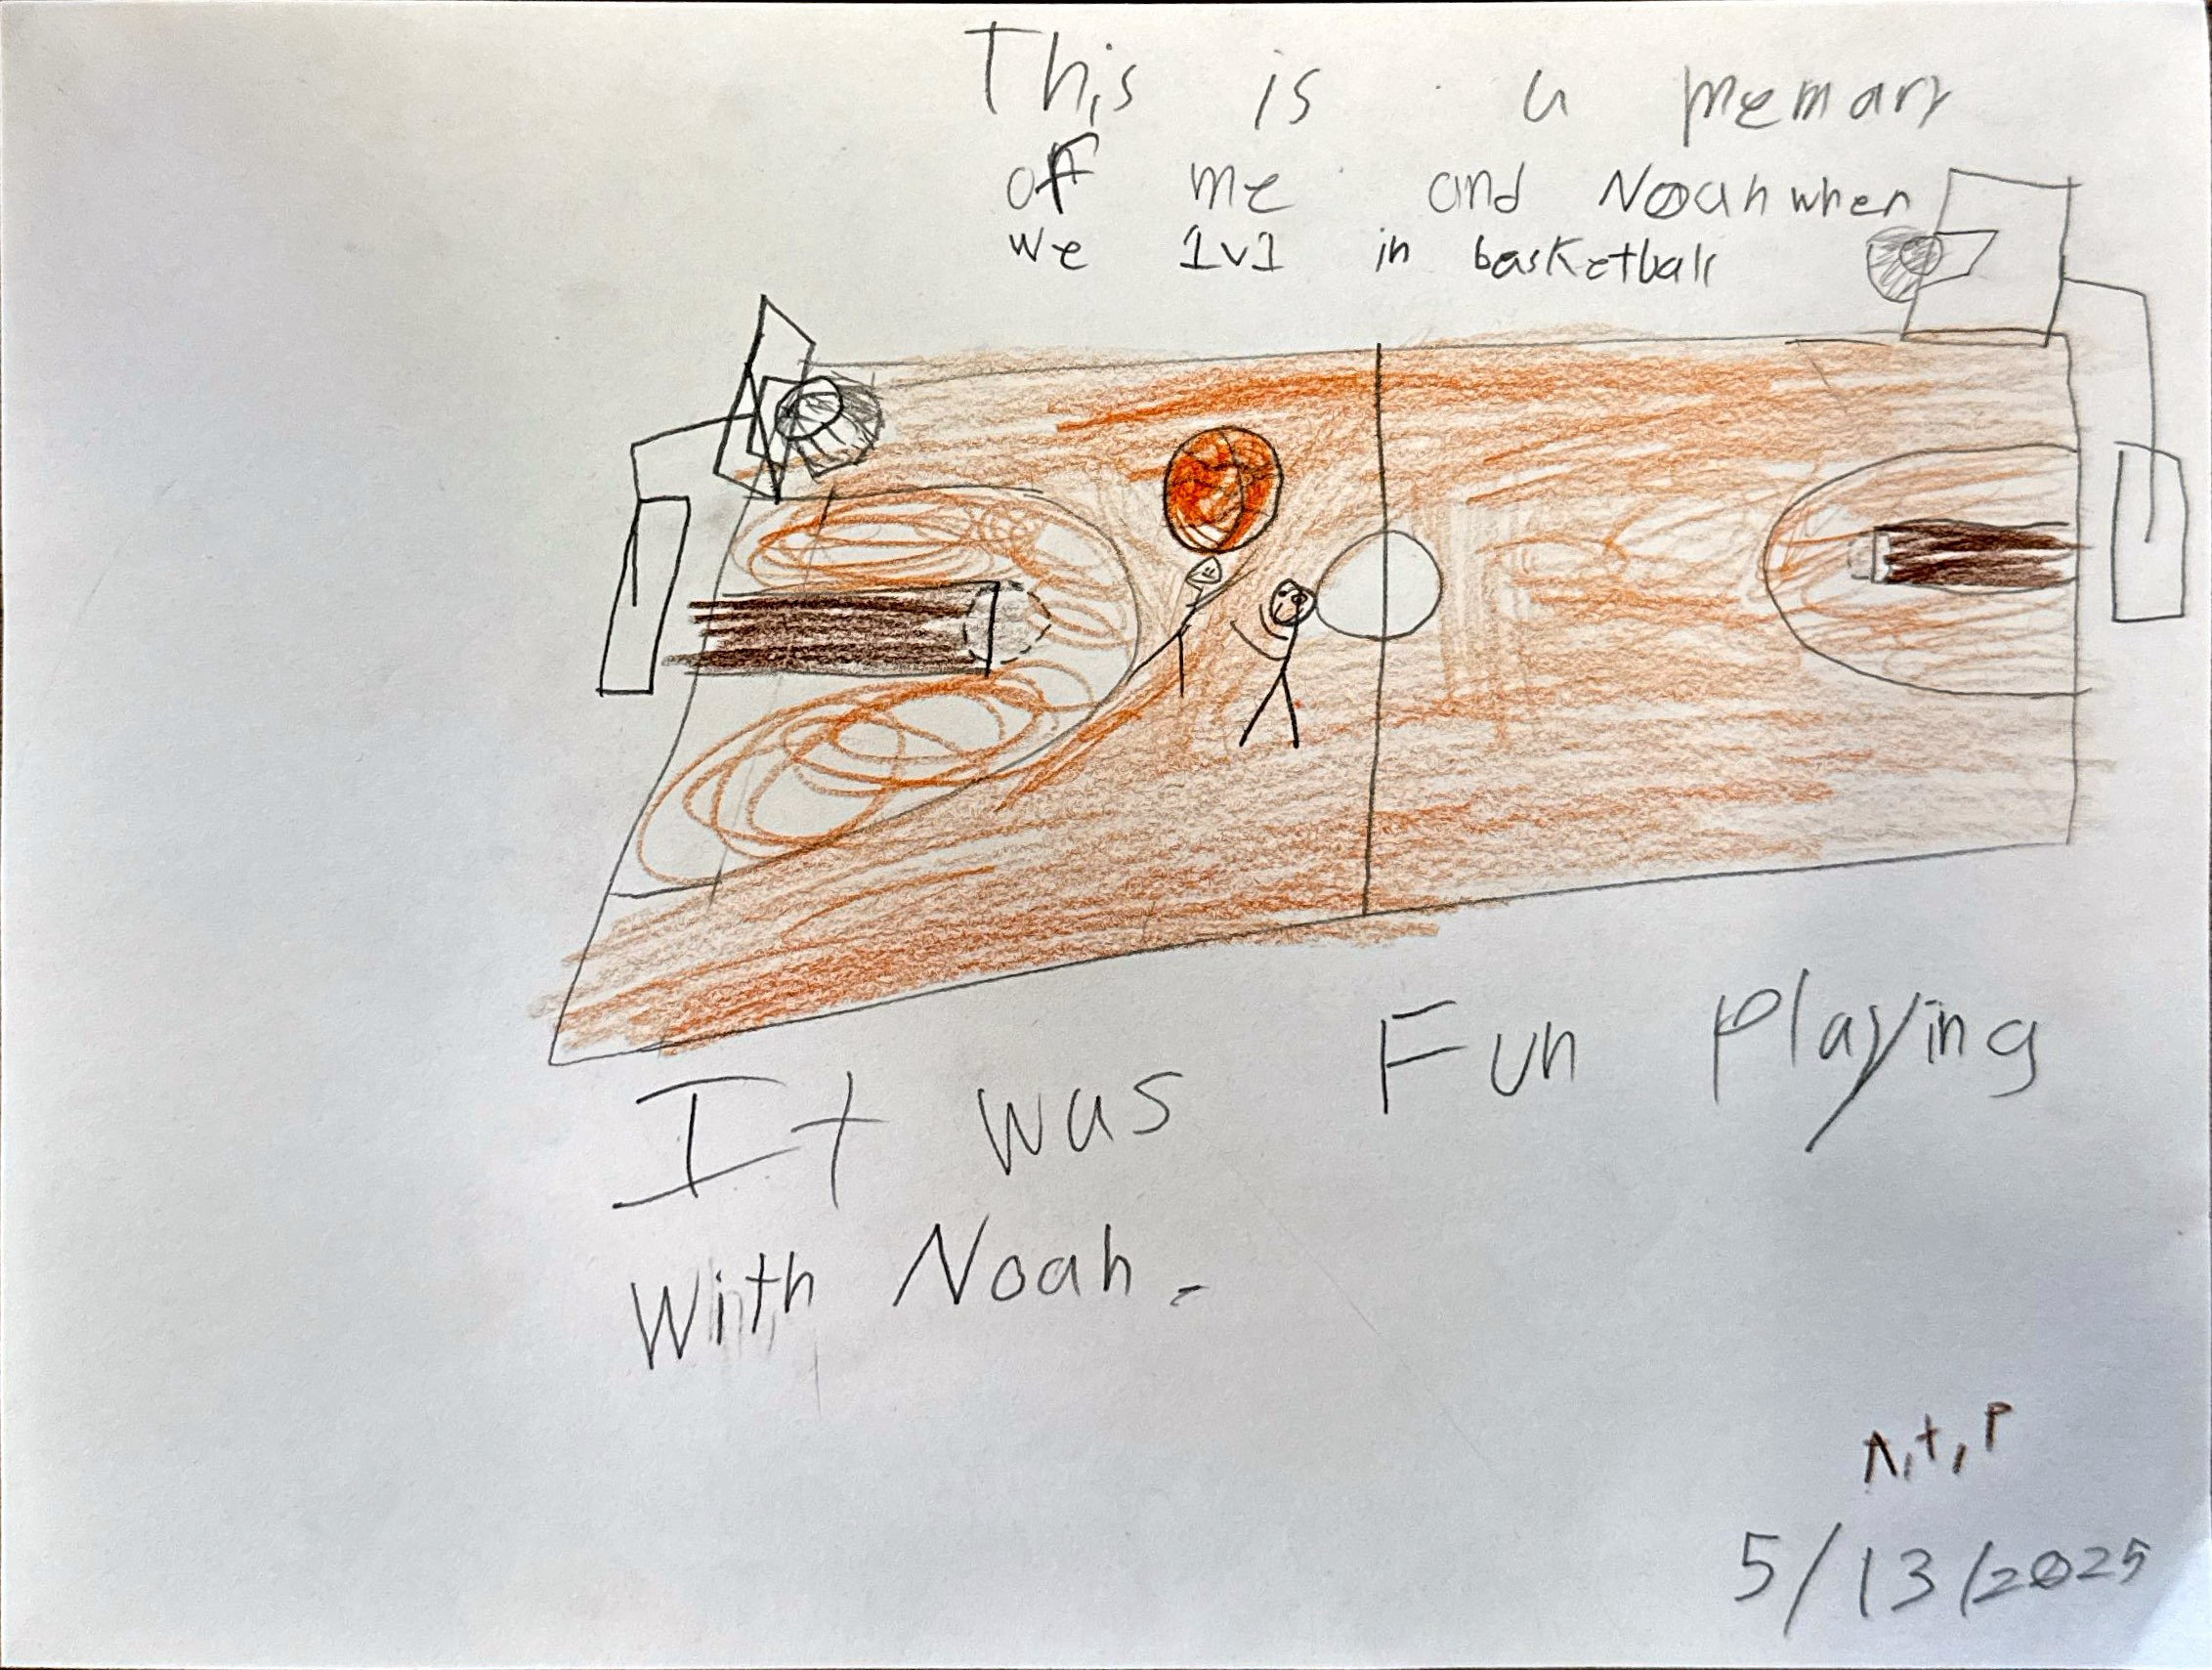 This is a memary
of me and Noah when
we 1v1 in basketball
It was Fun playing
With Noah.
n,t,p
5/13/2025